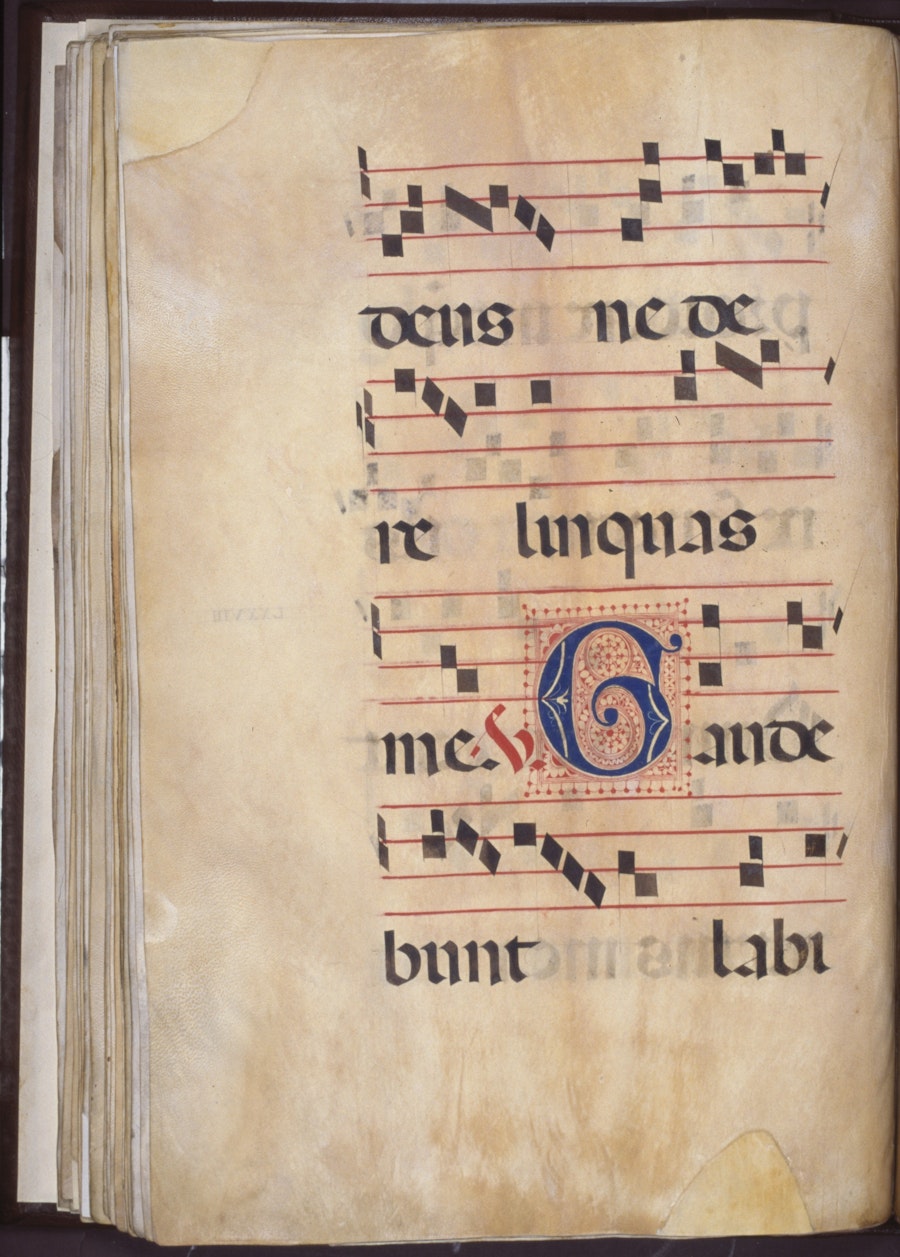 deus ne de
re linquas
me. V. Gaude
bunt labi